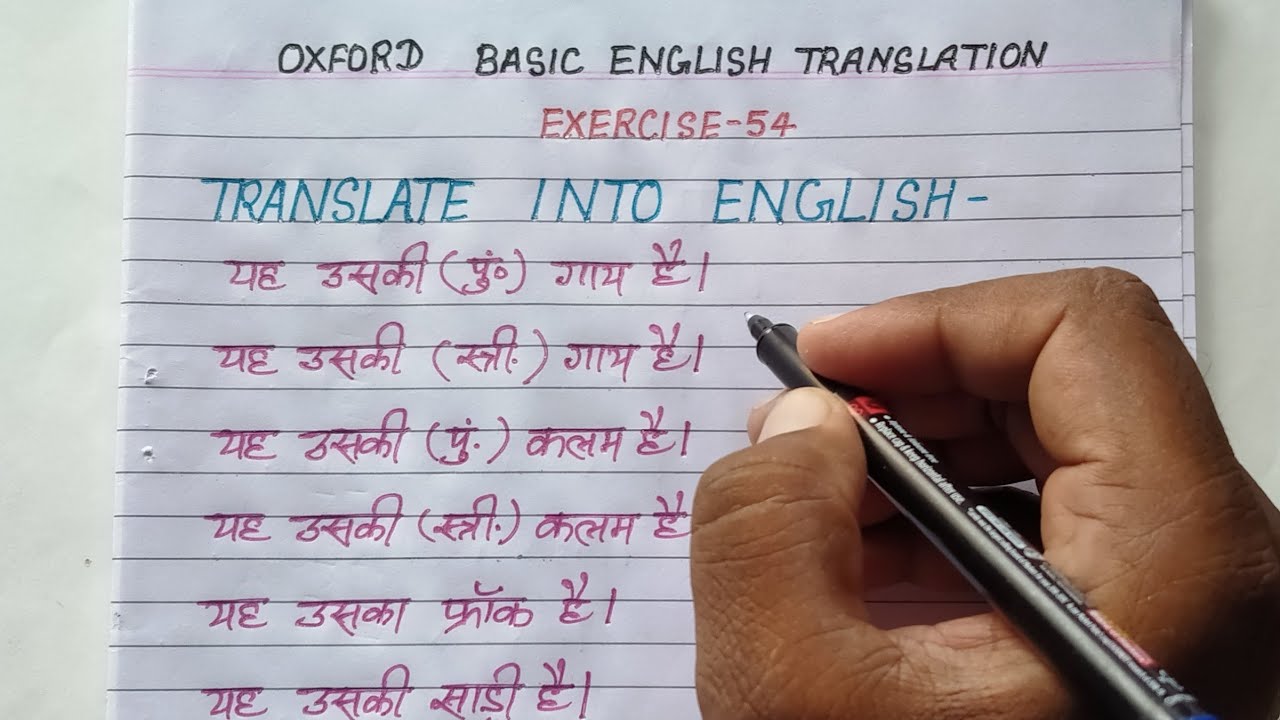 OXFORD BASIC ENGLISH TRANSLATION
EXERCISE-54
TRANSLATE INTO ENGLISH-
यह उसकी (पुं०) गाय है।
यह उसकी (स्त्री.) गाय है।
यह उसकी (पुं.) कलम है।
यह उसकी (स्त्री.) कलम है
यह उसका फ्रॉक है।
यह उसकी साड़ी है।